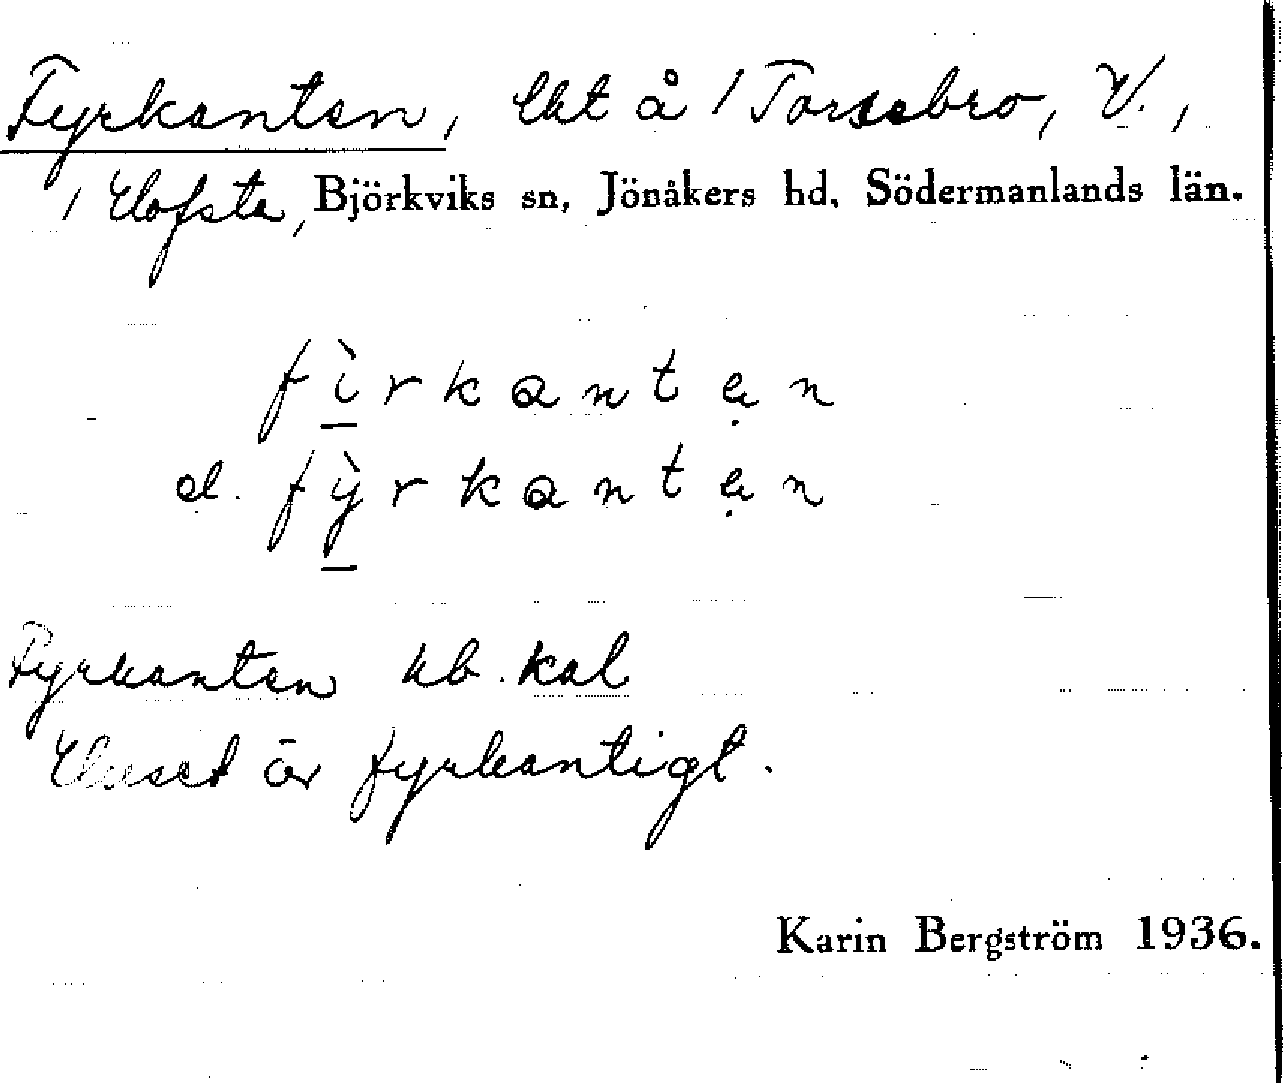 Fyrkanten, lht å /Torsebro, V.,
/ Hofsta, Björkviks sn, Jönåkers hd, Södermanlands län.
fìrkantẹn
el. fỳrkantẹn
Fyrkanten hb. kal
Huset är fyrkantigt.
Karin Bergström 1936.